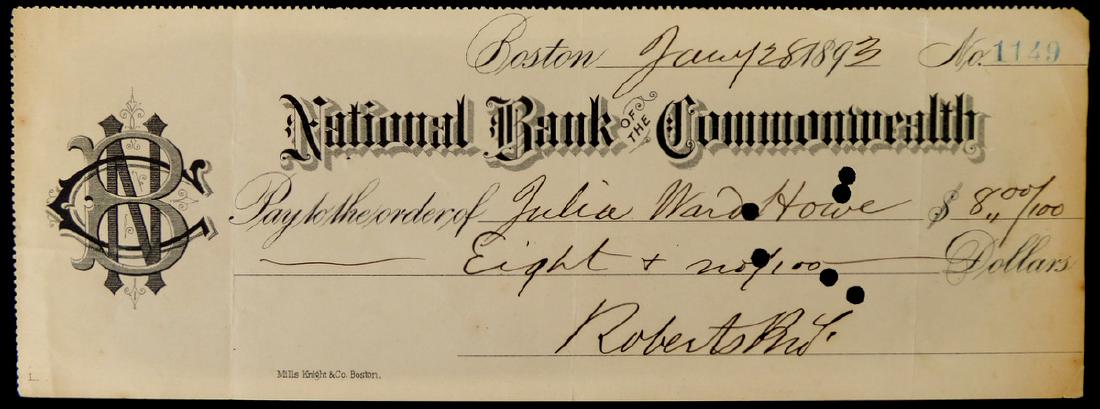 Boston Jany 28 1893 No. 1149
National Bank OF THE Commonwealth
Pay to the order of Julia Ward Howe $ 8,, 00/100
Eight + no/100 Dollars
Roberts Bros.
Mills Knight & Co. Boston.
NBC